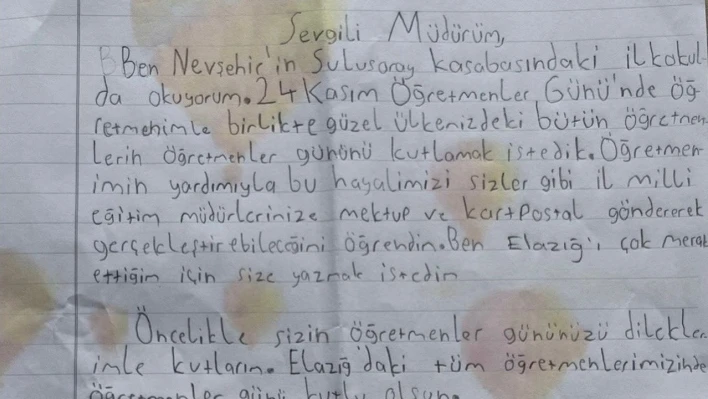 Sevgili Müdürüm,
Ben Nevşehir'in Sulusaray kasabasındaki ilkokul-
da okuyorum. 24 Kasım Öğretmenler Günü'nde öğ
retmenimle birlikte güzel ülkemizdeki bütün öğretmen
lerin öğretmenler gününü kutlamak istedik. Öğretmen
imin yardımıyla bu hayalimizi sizler gibi il milli
eğitim müdürlerinize mektup ve kartpostal göndererek
gerçekleştirebileceğini öğrendin. Ben Elazığ'ı, çok merak
ettiğim için size yazmak istedin
Öncelikle sizin öğretmenler gününüzü dilekler
imle kutların. Elazığ'daki tüm öğretmenlerimizinde
öğretmenler günü kutlu olsun.